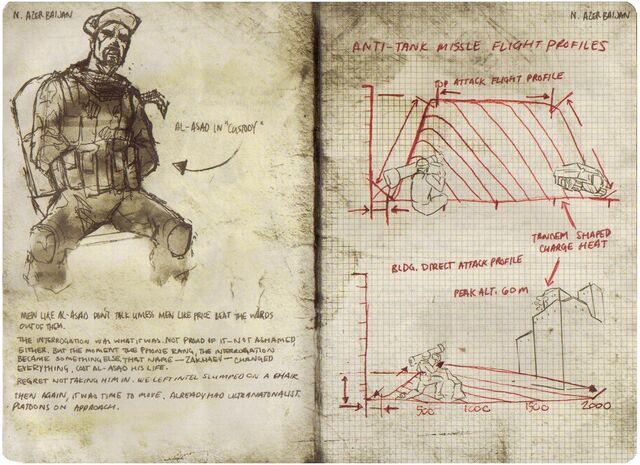 N. AZERBAIJAN
AL-ASAD IN "CUSTODY"
MEN LIKE AL-ASAD DON'T TALK UNLESS MEN LIKE PRICE BEAT THE WORDS
OUT OF THEM.
THE INTERROGATION WAS WHAT IT WAS. NOT PROUD OF IT—NOT ASHAMED,
EITHER. BUT THE MOMENT THE PHONE RANG, THE INTERROGATION
BECAME SOMETHING ELSE, THAT NAME — ZAKHAEV — CHANGED
EVERYTHING, COST AL-ASAD HIS LIFE.
REGRET NOT TAKING HIM IN. WE LEFT INTEL SLUMPED ON A CHAIR
THEN AGAIN, IT WAS TIME TO MOVE. ALREADY HAD ULTRANATIONALIST
PLATOONS ON APPROACH.
N. AZERBAIJAN
ANTI-TANK MISSLE FLIGHT PROFILES
TOP ATTACK FLIGHT PROFILE
TANDEM SHAPED
CHARGE HEAT
BLDG. DIRECT ATTACK PROFILE
PEAK ALT. 60M
500 1000 1500 2000